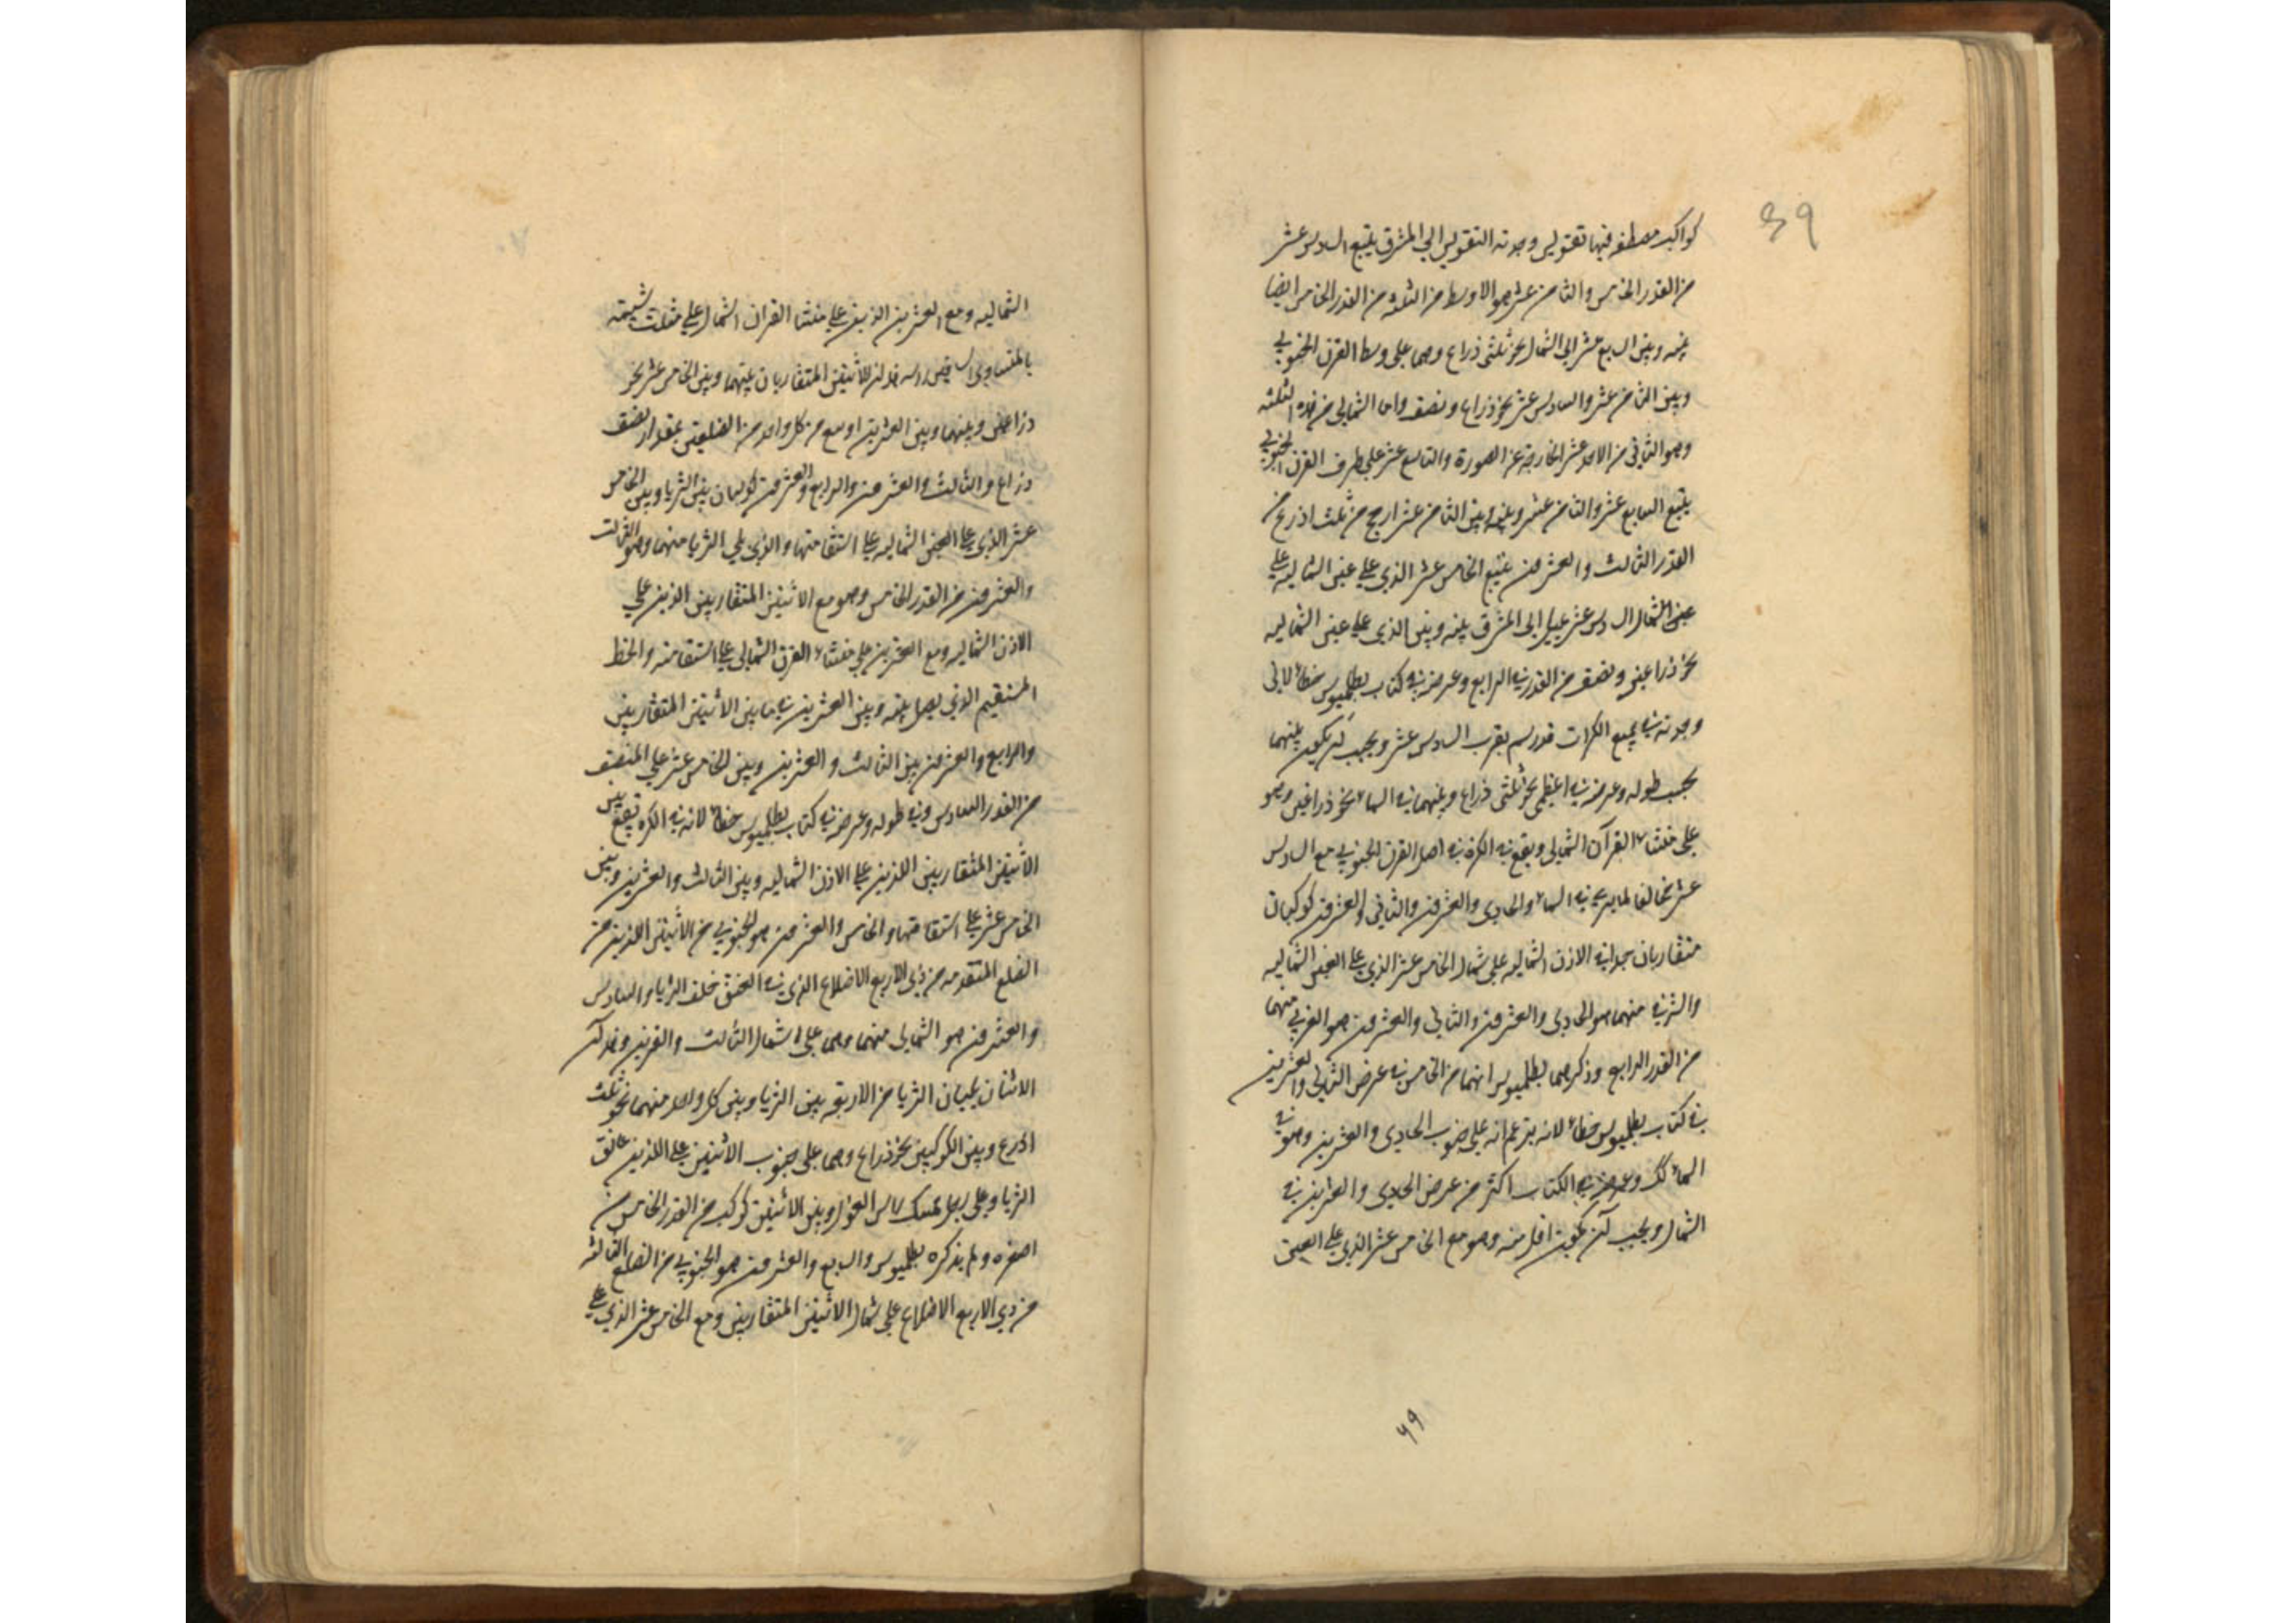 39
كواكب مصطفه فيها تقويس وحدته التقويس الي المشرق يتبع السادس عشر
من القدر الخامس والثامن عشر هو الاوسط من الثلثه من القدر الخامس ايضا
بينه وبين السابع عشر الي الشمال نحو ثلثي ذراع وهما علي وسط القرن الجنوبي
وبين الثامن عشر والسادس عشر نحو ذراع ونصف واما الشمالي من هذه الثلثه
وهو الثاني من الاحد عشر الخارجة عن الصورة والتاسع عشر علي طرف القرن الجنوبي
يتبع السابع عشر والثامن عشر وبينه وبين الثامن عشر ارجح من ثلث اذرع من
القدر الثالث والعشرون يتبع الخامس عشر الذي علي عين الشماليه علي
عين الشمال السادس عشر يميل الي المشرق بينه وبين الذي علي عين الشماليه
نحو ذراعين ونصف من القدر الرابع وعرضه في كتاب بطلميوس خطأ لاني
وجدته في جميع الكرات قد رسم بقرب السادس عشر ويجب ان يكون بينهما
بحسب طوله وعرضه في نحو ثلثي ذراع وبينهما في السماء نحو ذراعين وهو
علي منشاء القرن الشمالي ويقع في الكرة في اصل القرن الجنوبي مع السادس
عشر مخالفا لما يري في السماء والحادي والعشرون والثاني والعشرون كوكبان
متقاربان جدا في الاذن الشماليه علي شمال الخامس عشر الذي علي العين الشماليه
والشرقي منهما هو الحادي والعشرون والثاني والعشرون هو الغربي منهما
من القدر الرابع وذكرهما بطلميوس انهما من الخامس في عرض الثاني والعشرين
في كتاب بطلميوس خطأ لانه يزعم انه علي جنوب الحادي والعشرين وهو في
السماء وعرضه في الكتاب اكثر من عرض الحادي والعشرين في
الشمال ويجب ان يكون اقل منه وهو مع الخامس عشر الذي علي العين
69
٧٠
الشماليه ومع العشرين الذي علي منشا القرن الشمال علي مثلث شبيه
بالمتساوي الساقين راسه الاثنين المتقاربان بينهما وبين الخامس عشر نحو
ذراعين وبينهما وبين العشرين اوسع من كل واحد من الضلعين بمقدار نصف
ذراع والثالث والعشرون والرابع والعشرون كوكبان بين الثريا وبين الخامس
عشر الذي علي العين الشماليه علي استقامتها والذي يلي الثريا منهما وهو الثالث
والعشرون من القدر الخامس وهو مع الاثنين المتقاربين الذين علي
الاذن الشماليه ومع العشرين علي منشاء القرن الشمالي علي استقامه والخط
المستقيم الذي يصل بينه وبين العشرين في ما بين الاثنين المتقاربين
والرابع والعشرون بين الثالث والعشرين وبين الخامس عشر علي المنصف
من القدر السادس وفي طوله وعرضه في كتاب بطلميوس خطأ لانه في الكره يقع بين
الاثنين المتقاربين اللذين علي الاذن الشماليه وبين الثالث والعشرين وبين
الخامس عشر علي استقامتها والخامس والعشرون هو الجنوبي من الاثنين اللذين من
الضلع المتقدمه من ذي الاربع الاضلاع الذي في العنق خلف الثريا والسادس
والعشرون هو الشمالي منهما وهما علي شمال الثالث والعشرين وهذان
الاثنان يليان الثريا من الاربعه بين الثريا وبين كل واحد منهما نحو ثلث
اذرع وبين الكوكبين نحو ذراع وهما علي جنوب الاثنين اللذين علي عاتق
الثريا وعلي رجل ممسك راس الغول وبين الاثنين كوكب من القدر الخامس من
اصغره ولم يذكره بطلميوس والسابع والعشرون هو الجنوبي من الضلع التاليه
من ذي الاربع الاضلاع علي شمال الاثنين المتقاربين ومع الخامس عشر الذي علي